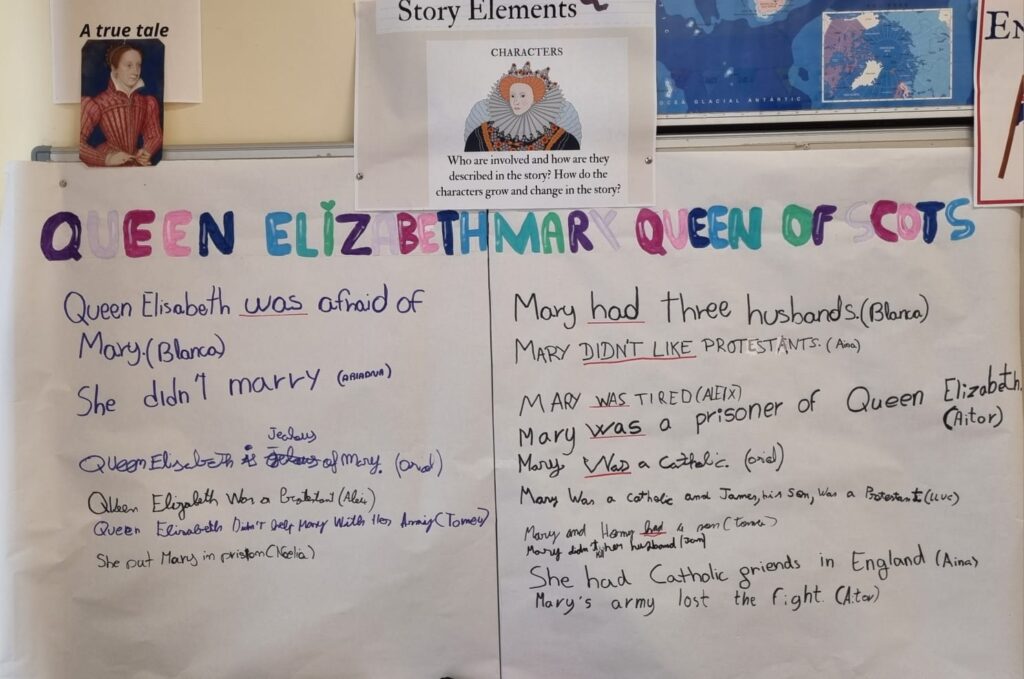 A true tale
Story Elements
CHARACTERS
Who are involved and how are they
described in the story? How do the
characters grow and change in the story?
OCEA GLACIAL ANTÀRTIC
EN
QUEEN ELIZABETH
Queen Elisabeth was afraid of
Mary. (Blanca)
She didn't marry (ARIADNA)
Jealous
Queen Elisabeth is of Mary. (oriol)
Queen Elizabeth Was a Protestant (Aleix)
Queen Elizabeth Didn't help Mary With Her Army (Tomeu)
She put Mary in prison (Noelia)
MARY QUEEN OF SCOTS
Mary had three husbands. (Blanca)
MARY DIDN'T LIKE PROTESTANTS. (Aina)
MARY WAS TIRED (ALEIX)
Mary was a prisoner of Queen Elizabeth.
(Aitor)
Mary Was a Catholic. (oriol)
Mary Was a catholic and James, his son, Was a Protestant (LLUC)
Mary and Henry had a son (Tomeu)
Mary didn't kill her husband (Joan)
She had Catholic griends in England (Aina)
Mary's army lost the fight. (Aitor)